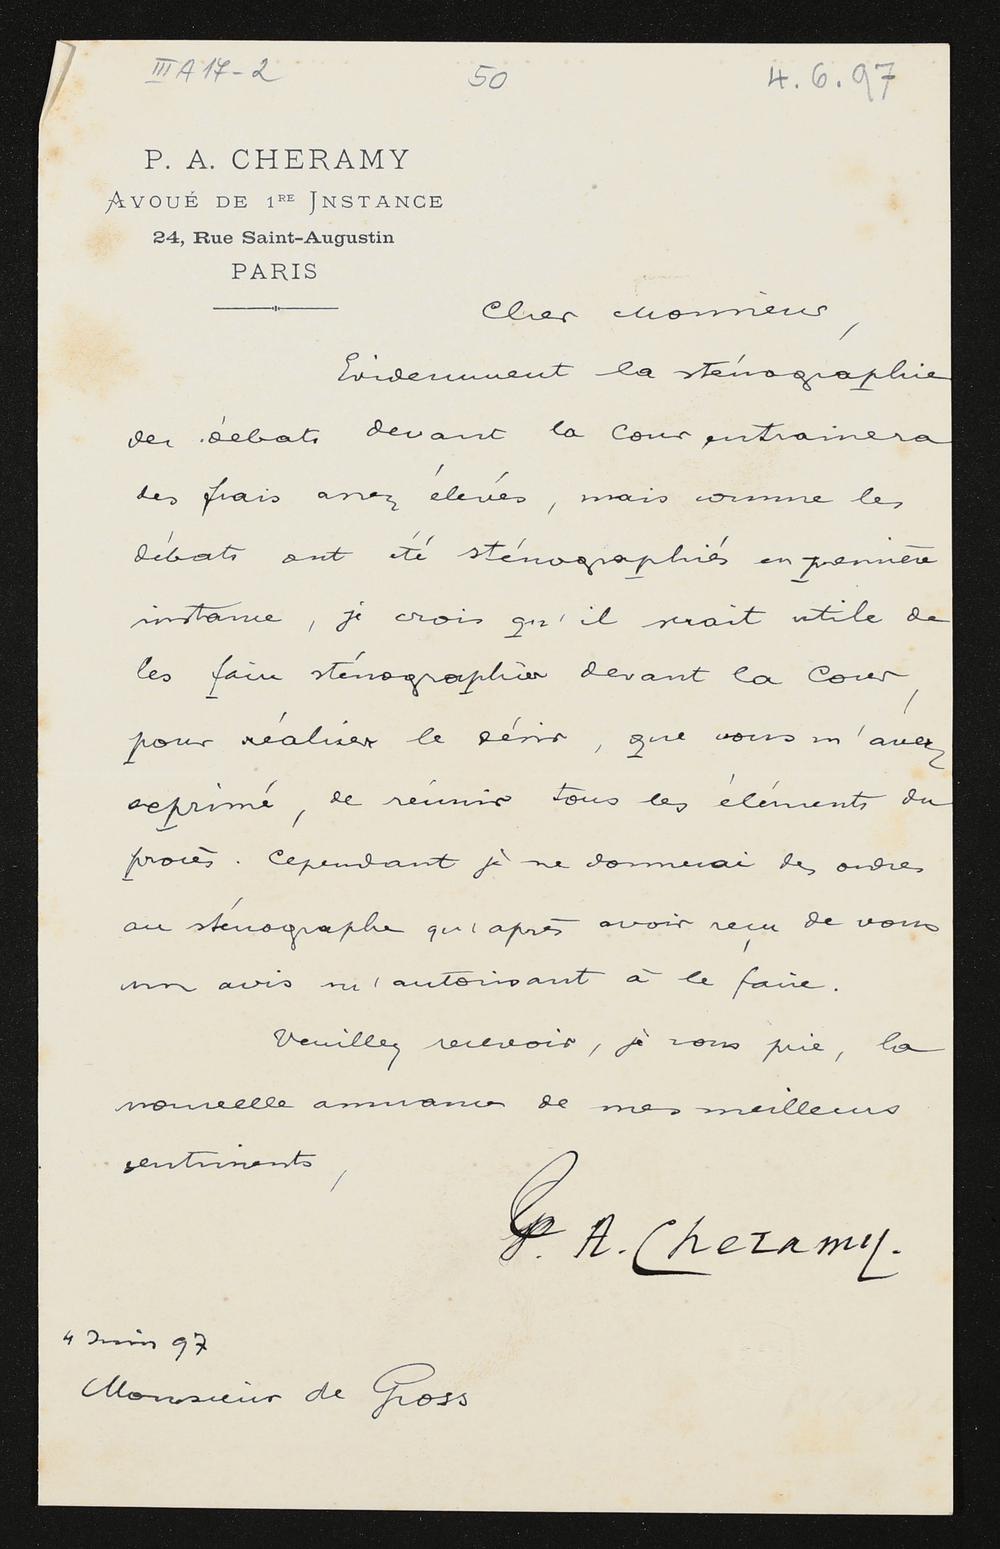 III A 17-2
50
4.6.97
P. A. CHERAMY
AVOUÉ DE 1RE INSTANCE
24, Rue Saint-Augustin
PARIS
Cher Monsieur,
Evidemment la sténographie
des débats devant la Cour entrainera
des frais assez élevés, mais comme les
débats ont été sténographiés en première
instance, je crois qu'il serait utile de
les faire sténographier devant la Cour,
pour réaliser le désir, que vous m'avez
exprimé, de réunir tous les éléments du
procès. Cependant je ne donnerai des ordres
au sténographe qu'après avoir reçu de vous
un avis m'autorisant à le faire.
Veuillez recevoir, je vous prie, la
nouvelle assurance de mes meilleurs
sentiments,
P. A. Cheramy.
4 Juin 97
Monsieur de Gross